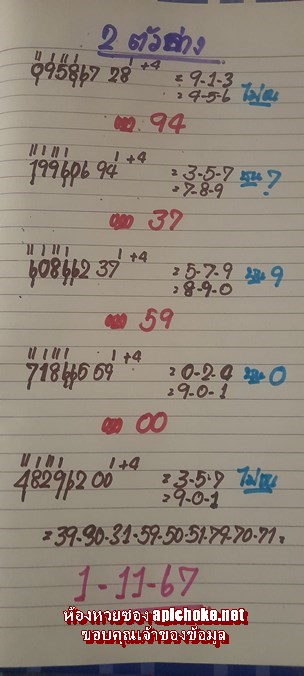 2 ตัวล่าง
095867 28 1+4
= 9-1-3
= 4-5-6
ไม่ชน
ออก 94
199606 94 1+4
= 3-5-7
= 7-8-9
ชน 7
ออก 37
608662 37 1+4
= 5-7-9
= 8-9-0
ชน 9
ออก 59
718466 69 1+4
= 0-2-4
= 9-0-1
ชน 0
ออก 00
482962 00 1+4
= 3-5-7
= 9-0-1
ไม่ชน
= 39-30-31-59-50-51-79-70-71 =
1-11-67
ห้องหวยซอง apichoke.net
ขอบคุณเจ้าของข้อมูล